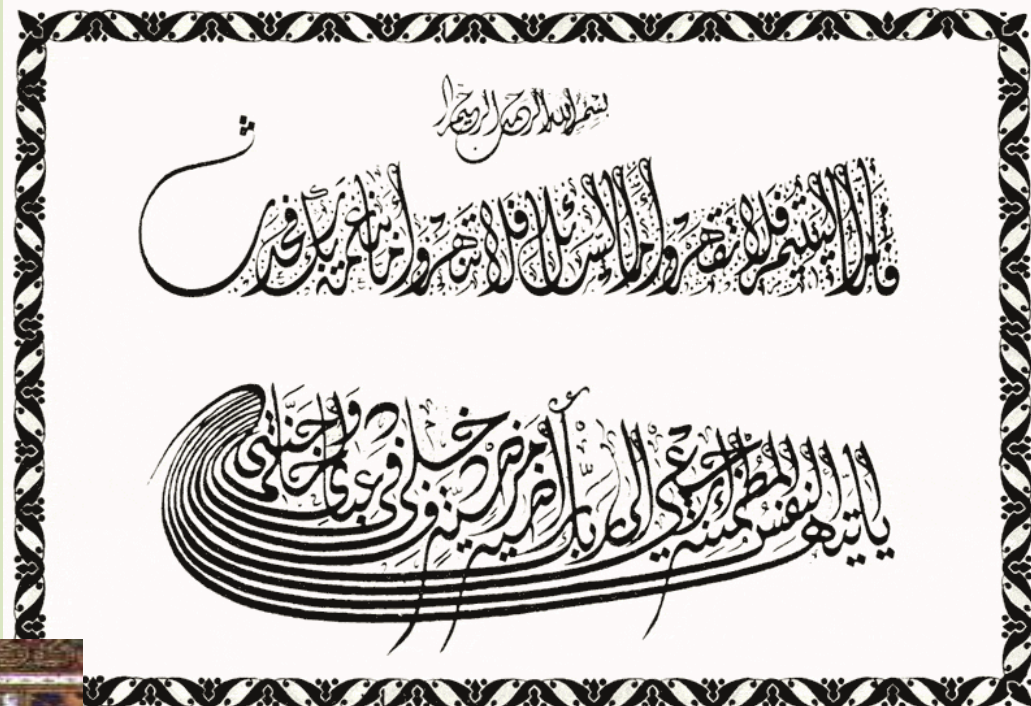 بسم الله الرحمن الرحيم
فأما اليتيم فلا تقهر وأما السائل فلا تنهر وأما بنعمة ربك فحدث
يا أيتها النفس المطمئنة ارجعي إلى ربك راضية مرضية فادخلي في عبادي وادخلي جنتي